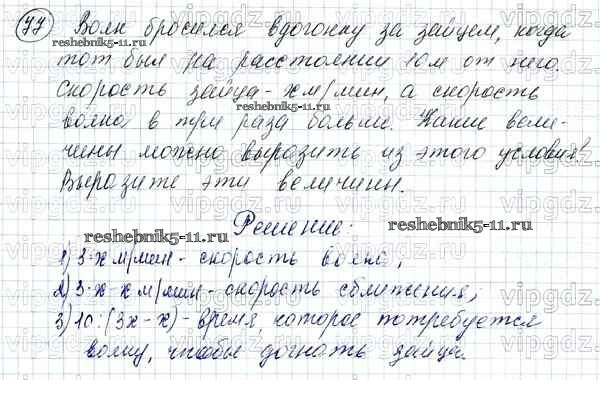 77) Волк бросился вдогонку за зайцем, когда
reshebnik5-11.ru
тот был на расстоянии 10 м от него.
Скорость зайца - х м/мин, а скорость
reshebnik5-11.ru
волка в три раза больше. Какие вели-
чины можно выразить из этого условия?
Выразите эти величины.
Решение:
reshebnik5-11.ru
reshebnik5-11.ru
1) 3·х м/мин - скорость волка;
2) 3·х-х м/мин - скорость сближения;
3) 10:(3х-х) - время, которое потребуется
волку, чтобы догнать зайца.
vipgdz.com